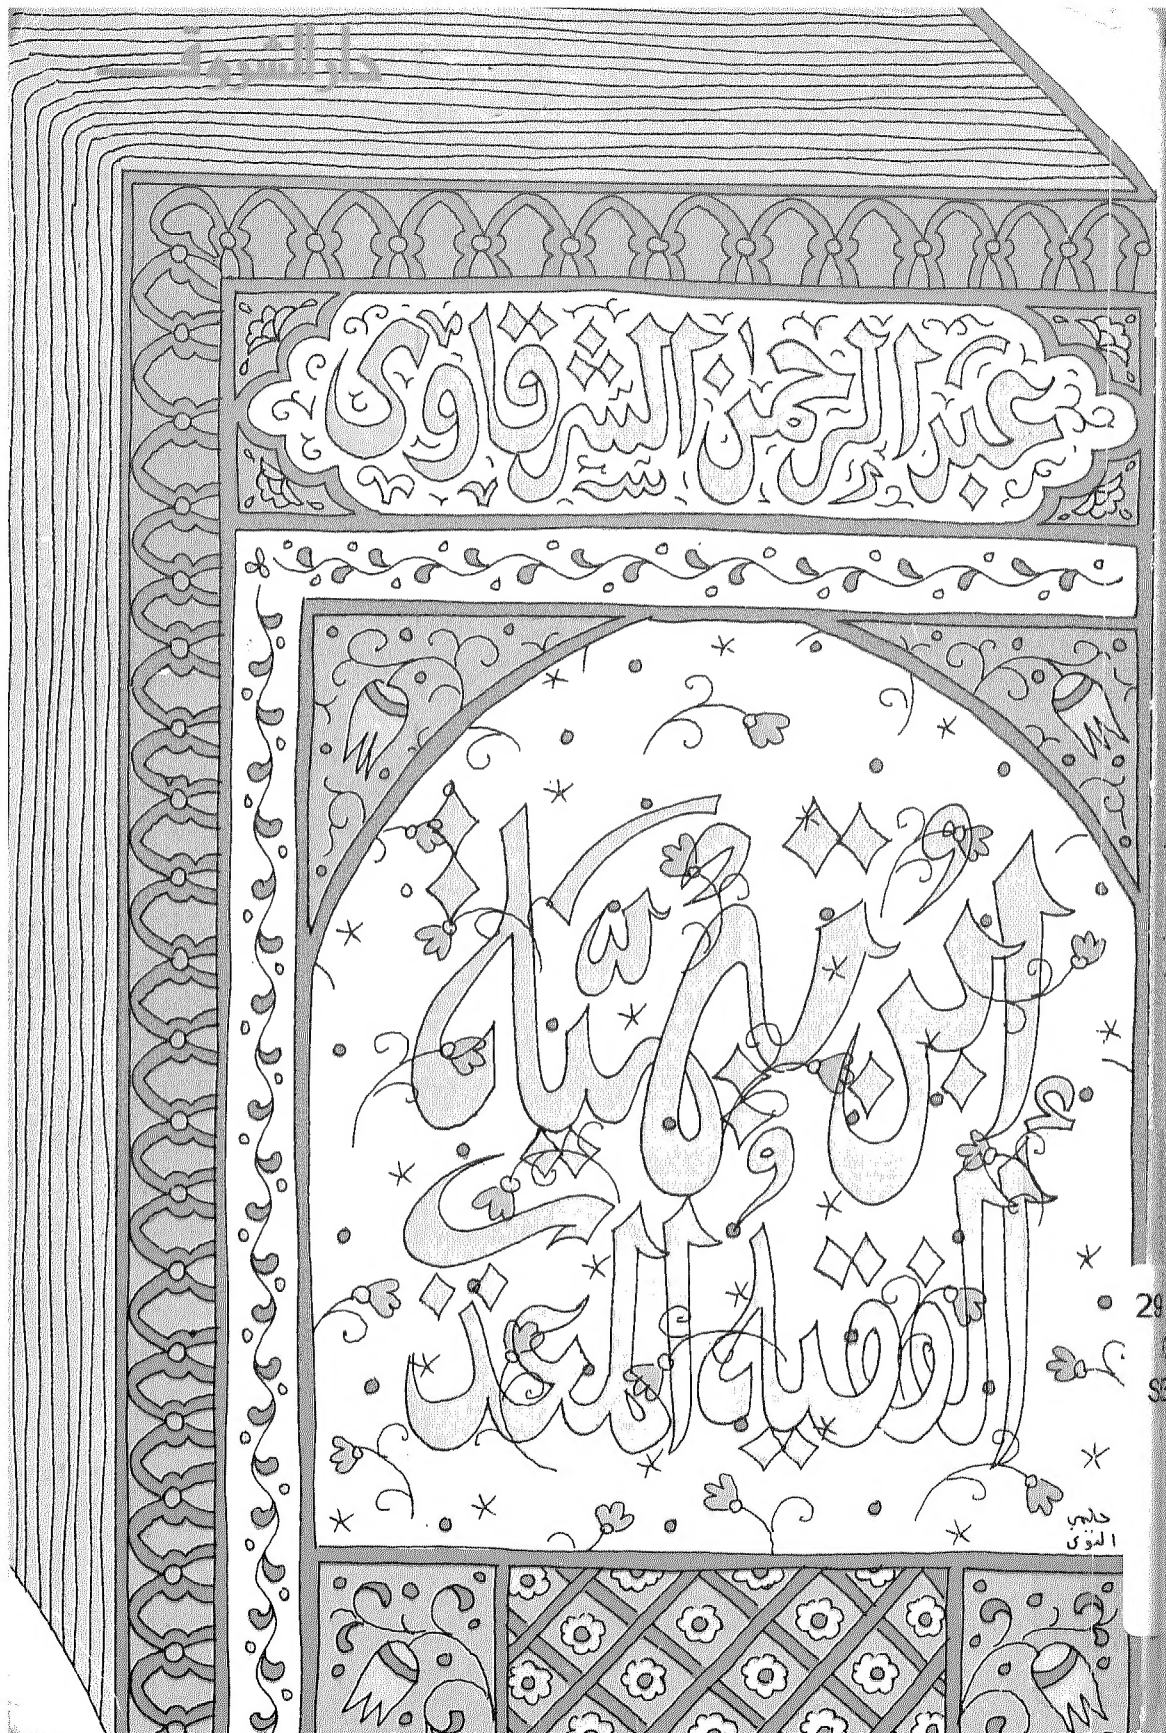 دار الشروق
عبد الرحمن الشرقاوى
ابن تيمية
الفقيه المعذب
حلمى
التونى
29